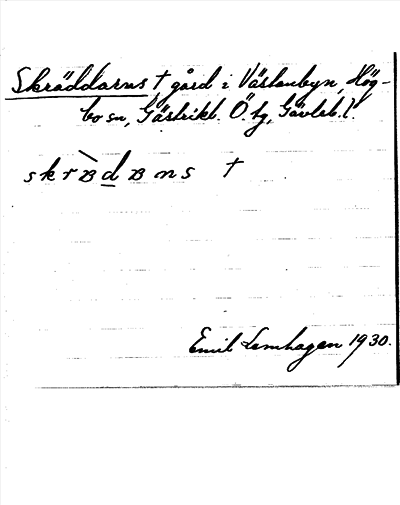 Skräddarns † gård i Västanbyn, Hög-
bo sn, Gästrikl. Ö. tg, Gävleb. l.
skrʙ̀ḏʙns †
Emil Lemhagen 1930.